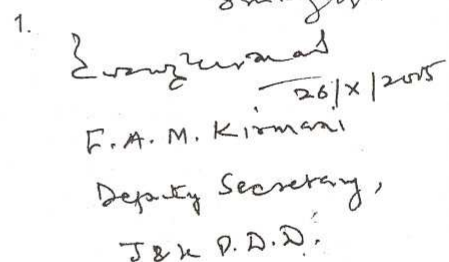 1.
26/X/2005
F. A. M. Kirmani
Deputy Secretary,
J & K P. D. D.